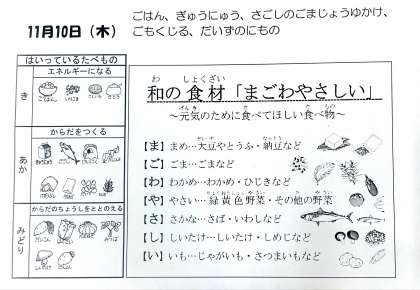 11月10日（木）
ごはん、ぎゅうにゅう、さごしのごまじょうゆかけ、
ごもくじる、だいずのにもの
はいっているたべもの
エネルギーになる
き
ごはん
さとう
からだをつくる
あか
ぎゅうにゅう
からだのちょうしをととのえる
みどり
わ しょくざい
和の食材「まごわやさしい」
げんき た た もの
～元気のために食べてほしい食べ物～
だいず なっとう
【ま】まめ…大豆やとうふ・納豆など
【ご】ごま…ごまなど
【わ】わかめ…わかめ・ひじきなど
りょくおうしょく やさい た やさい
【や】やさい…緑黄色野菜・その他の野菜
【さ】さかな…さば・いわしなど
【し】しいたけ…しいたけ・しめじなど
【い】いも…じゃがいも・さつまいもなど